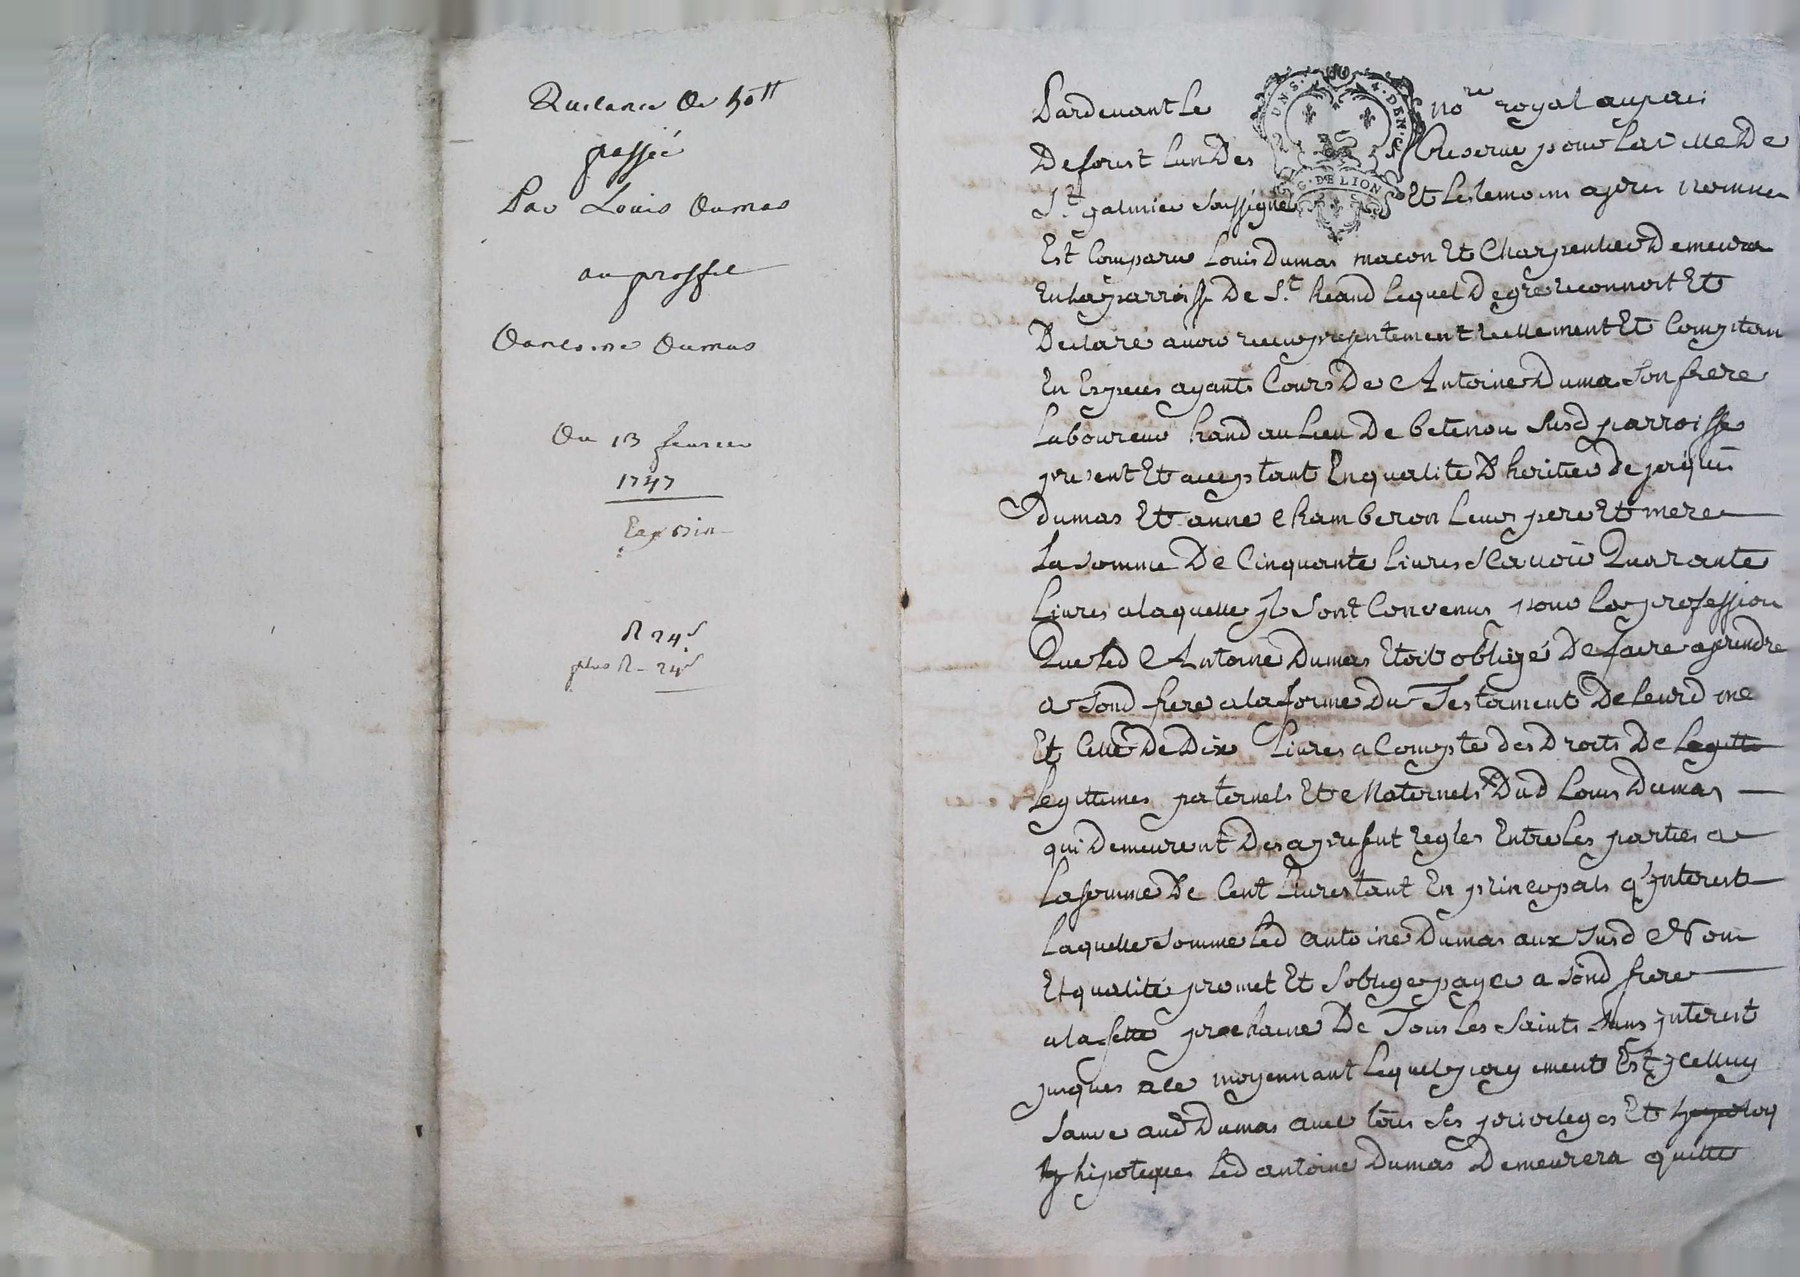 Quitance De 50tt
passée
Par Louis Dumas
au proffit
Dantoine Dumas
Du 13 fevrier
1747
Exp
R 24s
plus R - 24s
Pardevant Le nore royal au pais
De forest Lun Des Reserve pour La ville De
St galmier Soussigné Et Les temoins apres nommes
Est Comparu Louis Dumas macon Et Charpentier Demeura
En La parroisse De St heand Lequel De gré reconnoit Et
Declare avoir receu presentement reellement Et Comptan
En Especes ayants Cours De Antoine Dumas Son frere
Laboureur hand au Lieu De betenou Susd parroisse
present Et acceptant En qualité D'heritier de jacques
Dumas Et anne Chamberon Leurs pere Et mere
La somme De Cinquante Livres scavoir Quarante
Livres a laquelle jls Sont Convenus pour La profession
Que Led Antoine Dumas Etoit obligé De faire aprendre
a Sond frere a la forme Du Testament De Leurd me
Et Celle De Dix Livres a Compte des Droits De Legitte
Legittimes paternels Et Maternels Dud Louis Dumas
qui Demeurent Des a present regles Entre Les parties a
La somme De Cent Livres tant En principals q'jnterest
Laquelle somme Led antoine Dumas aux susd Nom
Et qualité promet Et Soblige payer a sond frere
a la fette prochaine De Tous Les Saints sans jnterest
jusques a ce moyennant Lequel payement Est jcelluy
Sauve aud Dumas avec tous Ses privileges Et
hipoteques Led antoine Dumas Demeurera quitte